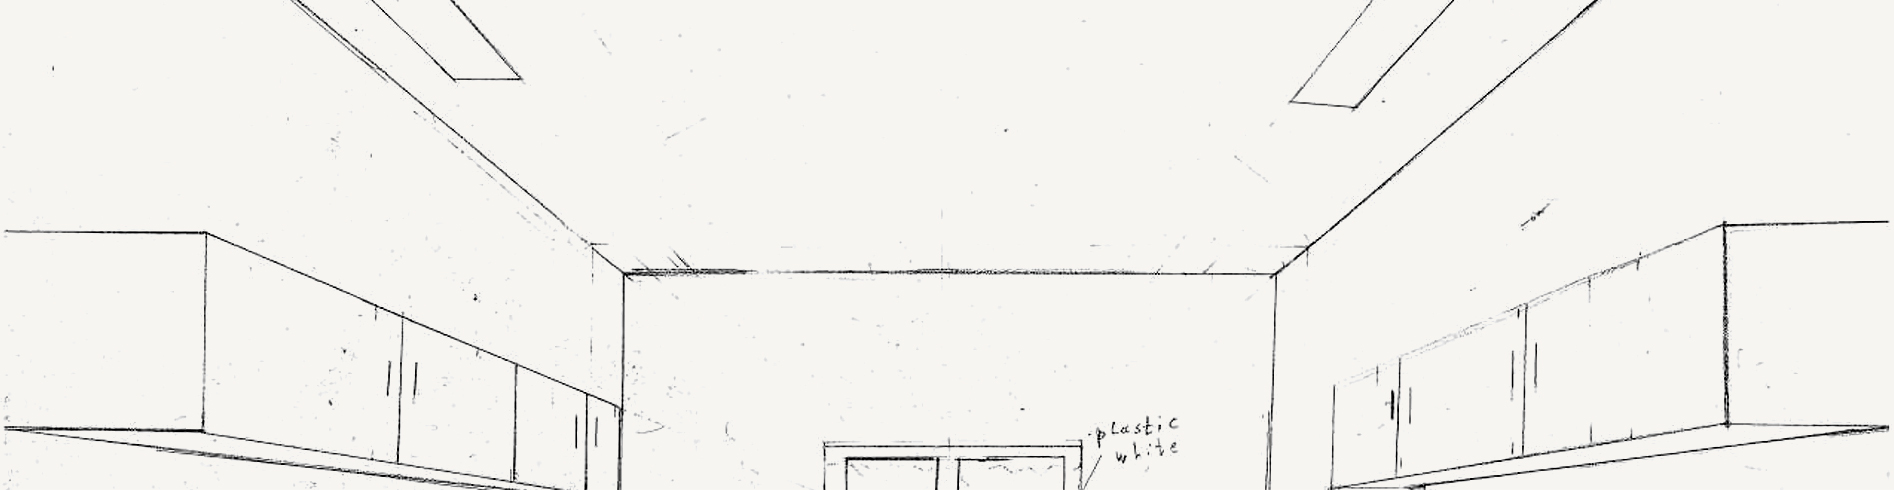 plastic
white